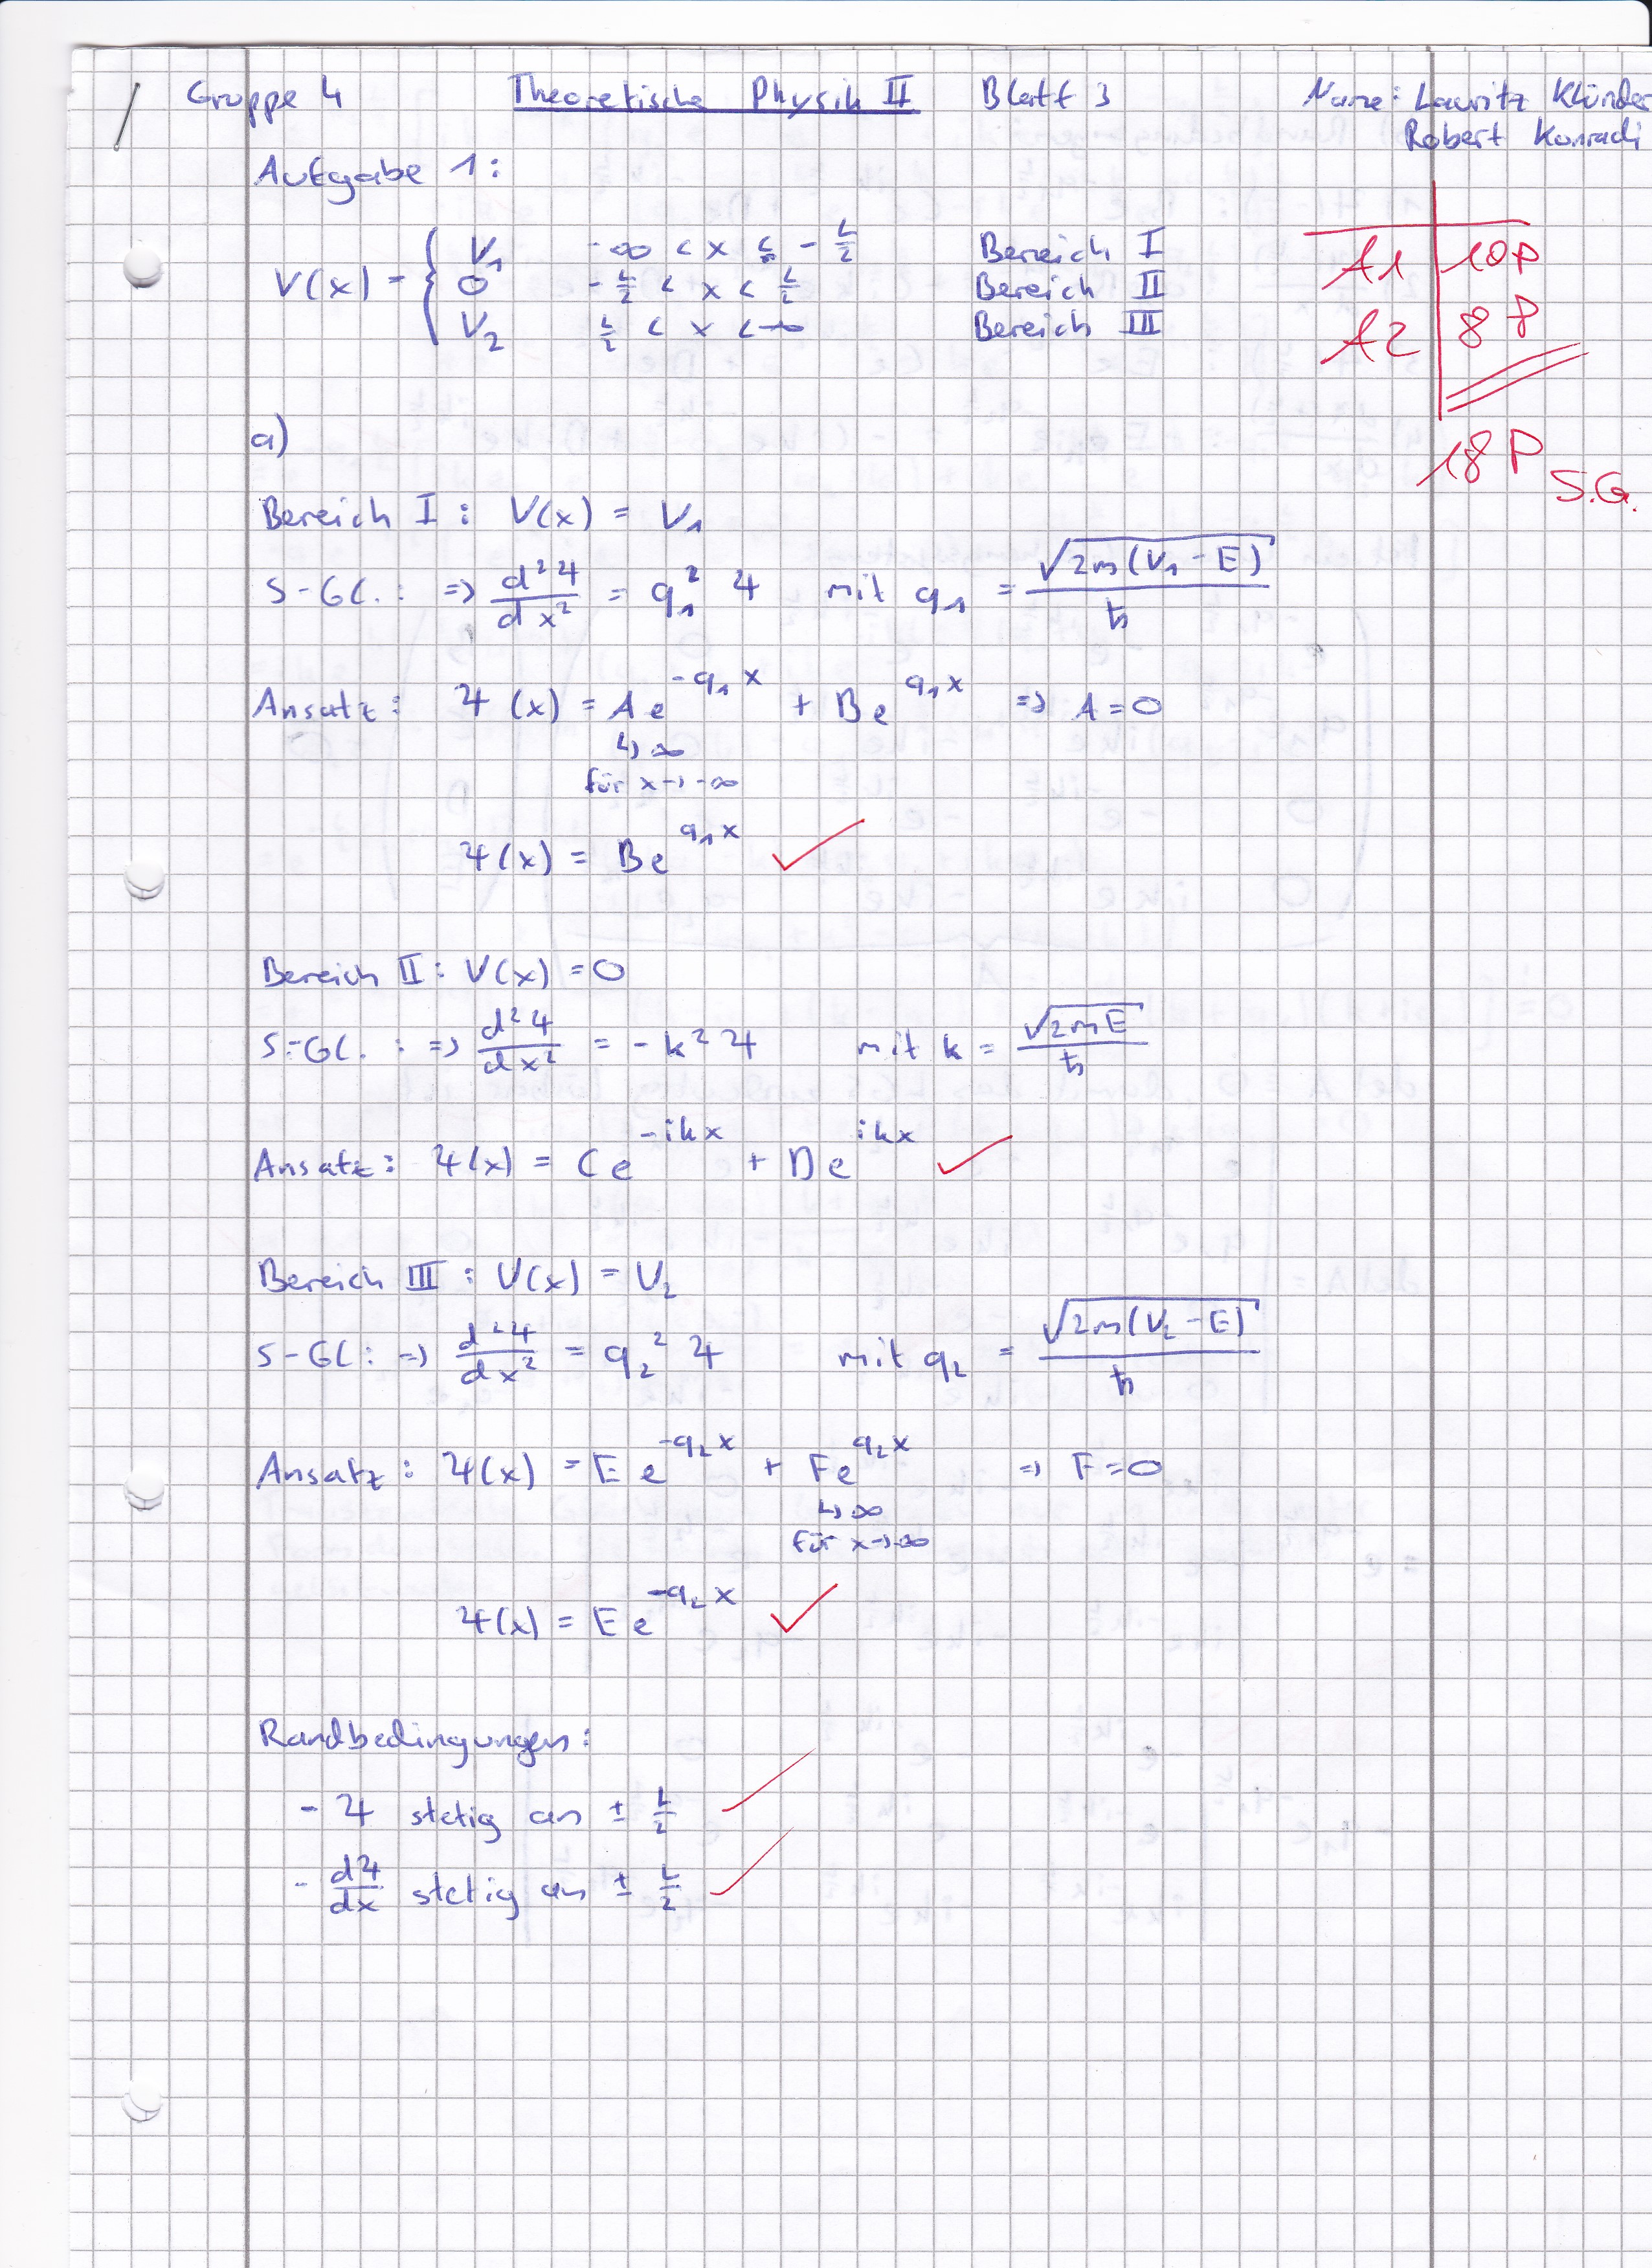 Gruppe 4 Theoretische Physik II Blatt 3 Name: Lauritz Klünder
Robert Konradi
Aufgabe 1:
V(x) = { V₁ -∞ < x ≤ - L/2 Bereich I
0 - L/2 < x < L/2 Bereich II
V₂ L/2 < x < ∞ Bereich III
A1 | 10P
A2 | 8P
18P S.G.
a)
Bereich I : V(x) = V₁
S-Gl. : => d²Ψ/dx² = q₁² Ψ mit q₁ = √(2m(V₁ - E))/ħ
Ansatz: Ψ(x) = A e^(-q₁x) + B e^(q₁x) => A = 0
↳ ∞
für x → -∞
Ψ(x) = B e^(q₁x) ✓
Bereich II : V(x) = 0
S-Gl. : => d²Ψ/dx² = - k² Ψ mit k = √(2mE)/ħ
Ansatz: Ψ(x) = C e^(-ikx) + D e^(ikx) ✓
Bereich III : V(x) = V₂
S-Gl : => d²Ψ/dx² = q₂² Ψ mit q₂ = √(2m(V₂ - E))/ħ
Ansatz: Ψ(x) = E e^(-q₂x) + F e^(q₂x) => F = 0
↳ ∞
für x → ∞
Ψ(x) = E e^(-q₂x) ✓
Randbedingungen:
- Ψ stetig an ± L/2 ✓
- dΨ/dx stetig an ± L/2 ✓